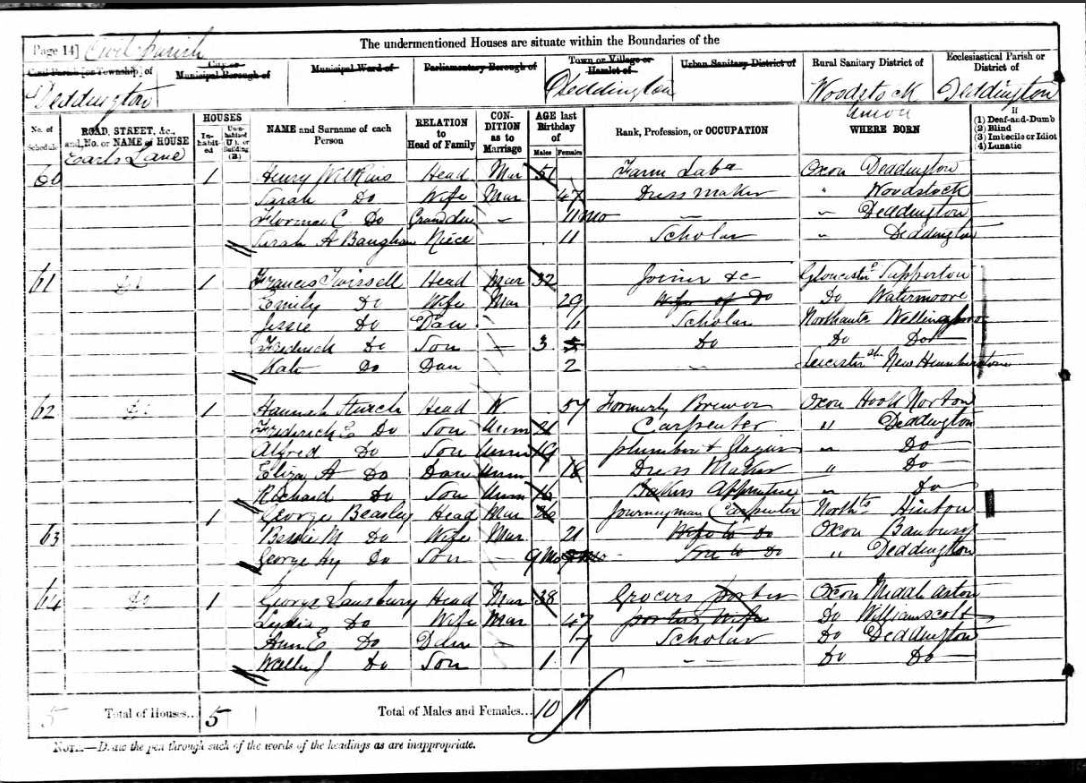 Page 14] Civil Parish
The undermentioned Houses are situate within the Boundaries of the
Civil Parish [or Township] of City or Municipal Borough of Municipal Ward of Parliamentary Borough of Town or Village or Hamlet of Urban Sanitary District of Rural Sanitary District of Ecclesiastical Parish or District of
Deddington Deddington Woodstock Union Deddington
No. of Schedule ROAD, STREET, &c., and No. or NAME of HOUSE HOUSES In-habit-ed Un-inhabited (U.), or Building (B.) NAME and Surname of each Person RELATION to Head of Family CON-DITION as to Marriage AGE last Birthday of Males Females Rank, Profession, or OCCUPATION WHERE BORN If (1) Deaf-and-Dumb (2) Blind (3) Imbecile or Idiot (4) Lunatic
Earls Lane
60 1 Henry Wilkins Head Mar 51 Farm Lab Oxon Deddington
Sarah Do Wife Mar 47 Dress maker " Woodstock
Florence C Do 11 mo - " Deddington
Sarah A Baughan Niece 11 Scholar " Deddington
61 Do 1 Francis Twissell Head Mar 32 Joiner &c Gloucester Sapperton
Emily Do Wife Mar 29 Wife of Do Do Watermoore
Jessie Do Dau 11 Scholar Northants
Frederick Do Son - 3 Do Do Do
Kate Do Dau 2 - Leicester
62 Do 1 Hannah Sturch Head W. 57 Formerly Brewer Oxon Hook Norton
Frederick E Do Son Unm 21 Carpenter " Deddington
Alfred Do Son Unm 19 plumber & Glazier " Do
Eliza A Do Dau Unm 18 Dress Maker " Do
Richard Do Son Unm 16 Apprentice " Do
1 George Beasley Head Mar 26 Journeyman Carpenter North Hinton
63 Bessie M Do Wife Mar 21 Wife to Do Oxon Banbury
George Hy Do Son - 9 Mo Son to Do " Deddington
64 Do 1 George Sansbury Head Mar 38 Grocers porter Oxon Middle Aston
Lydia Do Wife Mar 47 porters Wife Do Williamscott
Do 7 Scholar Do Deddington
Do Son 1 - Do Do
5 Total of Houses... 5 Total of Males and Females... 10 11
NOTE.—Draw the pen through such of the words of the headings as are inappropriate.